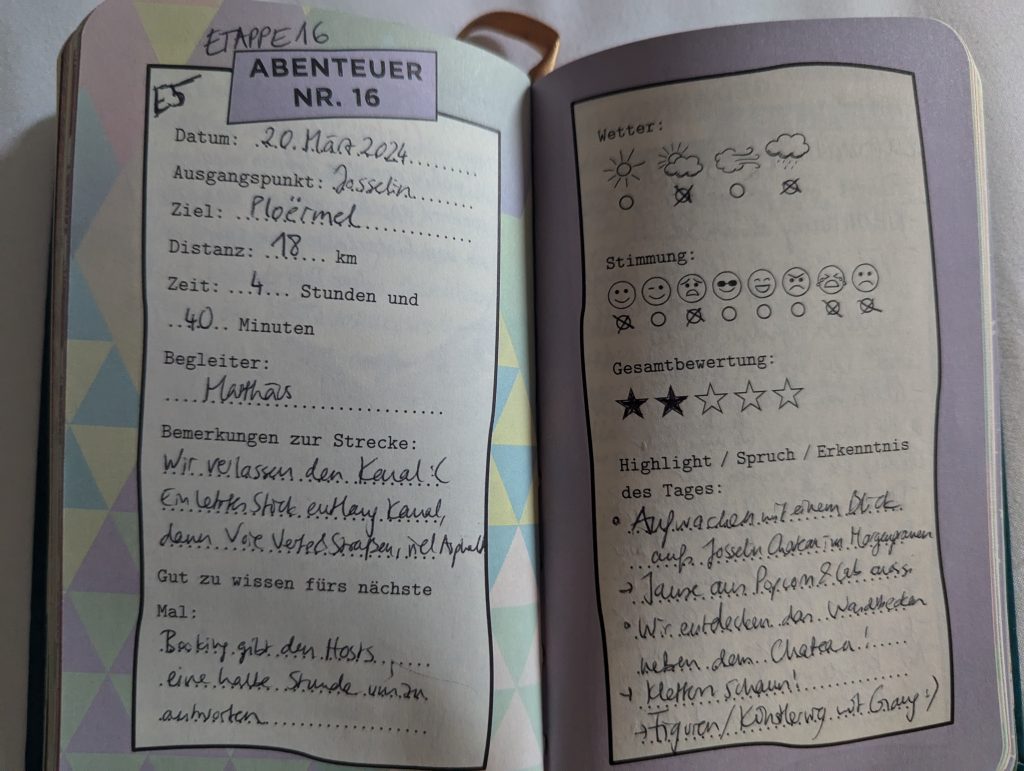 ETAPPE 16
ABENTEUER
NR. 16
E5
Datum: 20. März 2024
Ausgangspunkt: Josselin
Ziel: Ploërmel
Distanz: 18 km
Zeit: 4 Stunden und
40 Minuten
Begleiter:
Matthäis
Bemerkungen zur Strecke:
Wir verlassen den Kanal :(
Ein letztes Stück entlang Kanal,
dann Voie Verte & Straßen, viel Asphalt
Gut zu wissen fürs nächste
Mal:
Booking gibt den Hosts
eine halbe Stunde um zu
antworten
Wetter:
Stimmung:
Gesamtbewertung:
Highlight / Spruch / Erkenntnis
des Tages:
• Aufwachen mit einem Blick
aufs Josselin Chateau im Morgengrauen
→ Jause aus Popcorn &
• Wir entdecken das
neben dem Chateau!
→ Klettern schaun!
→ Figuren / mit :)